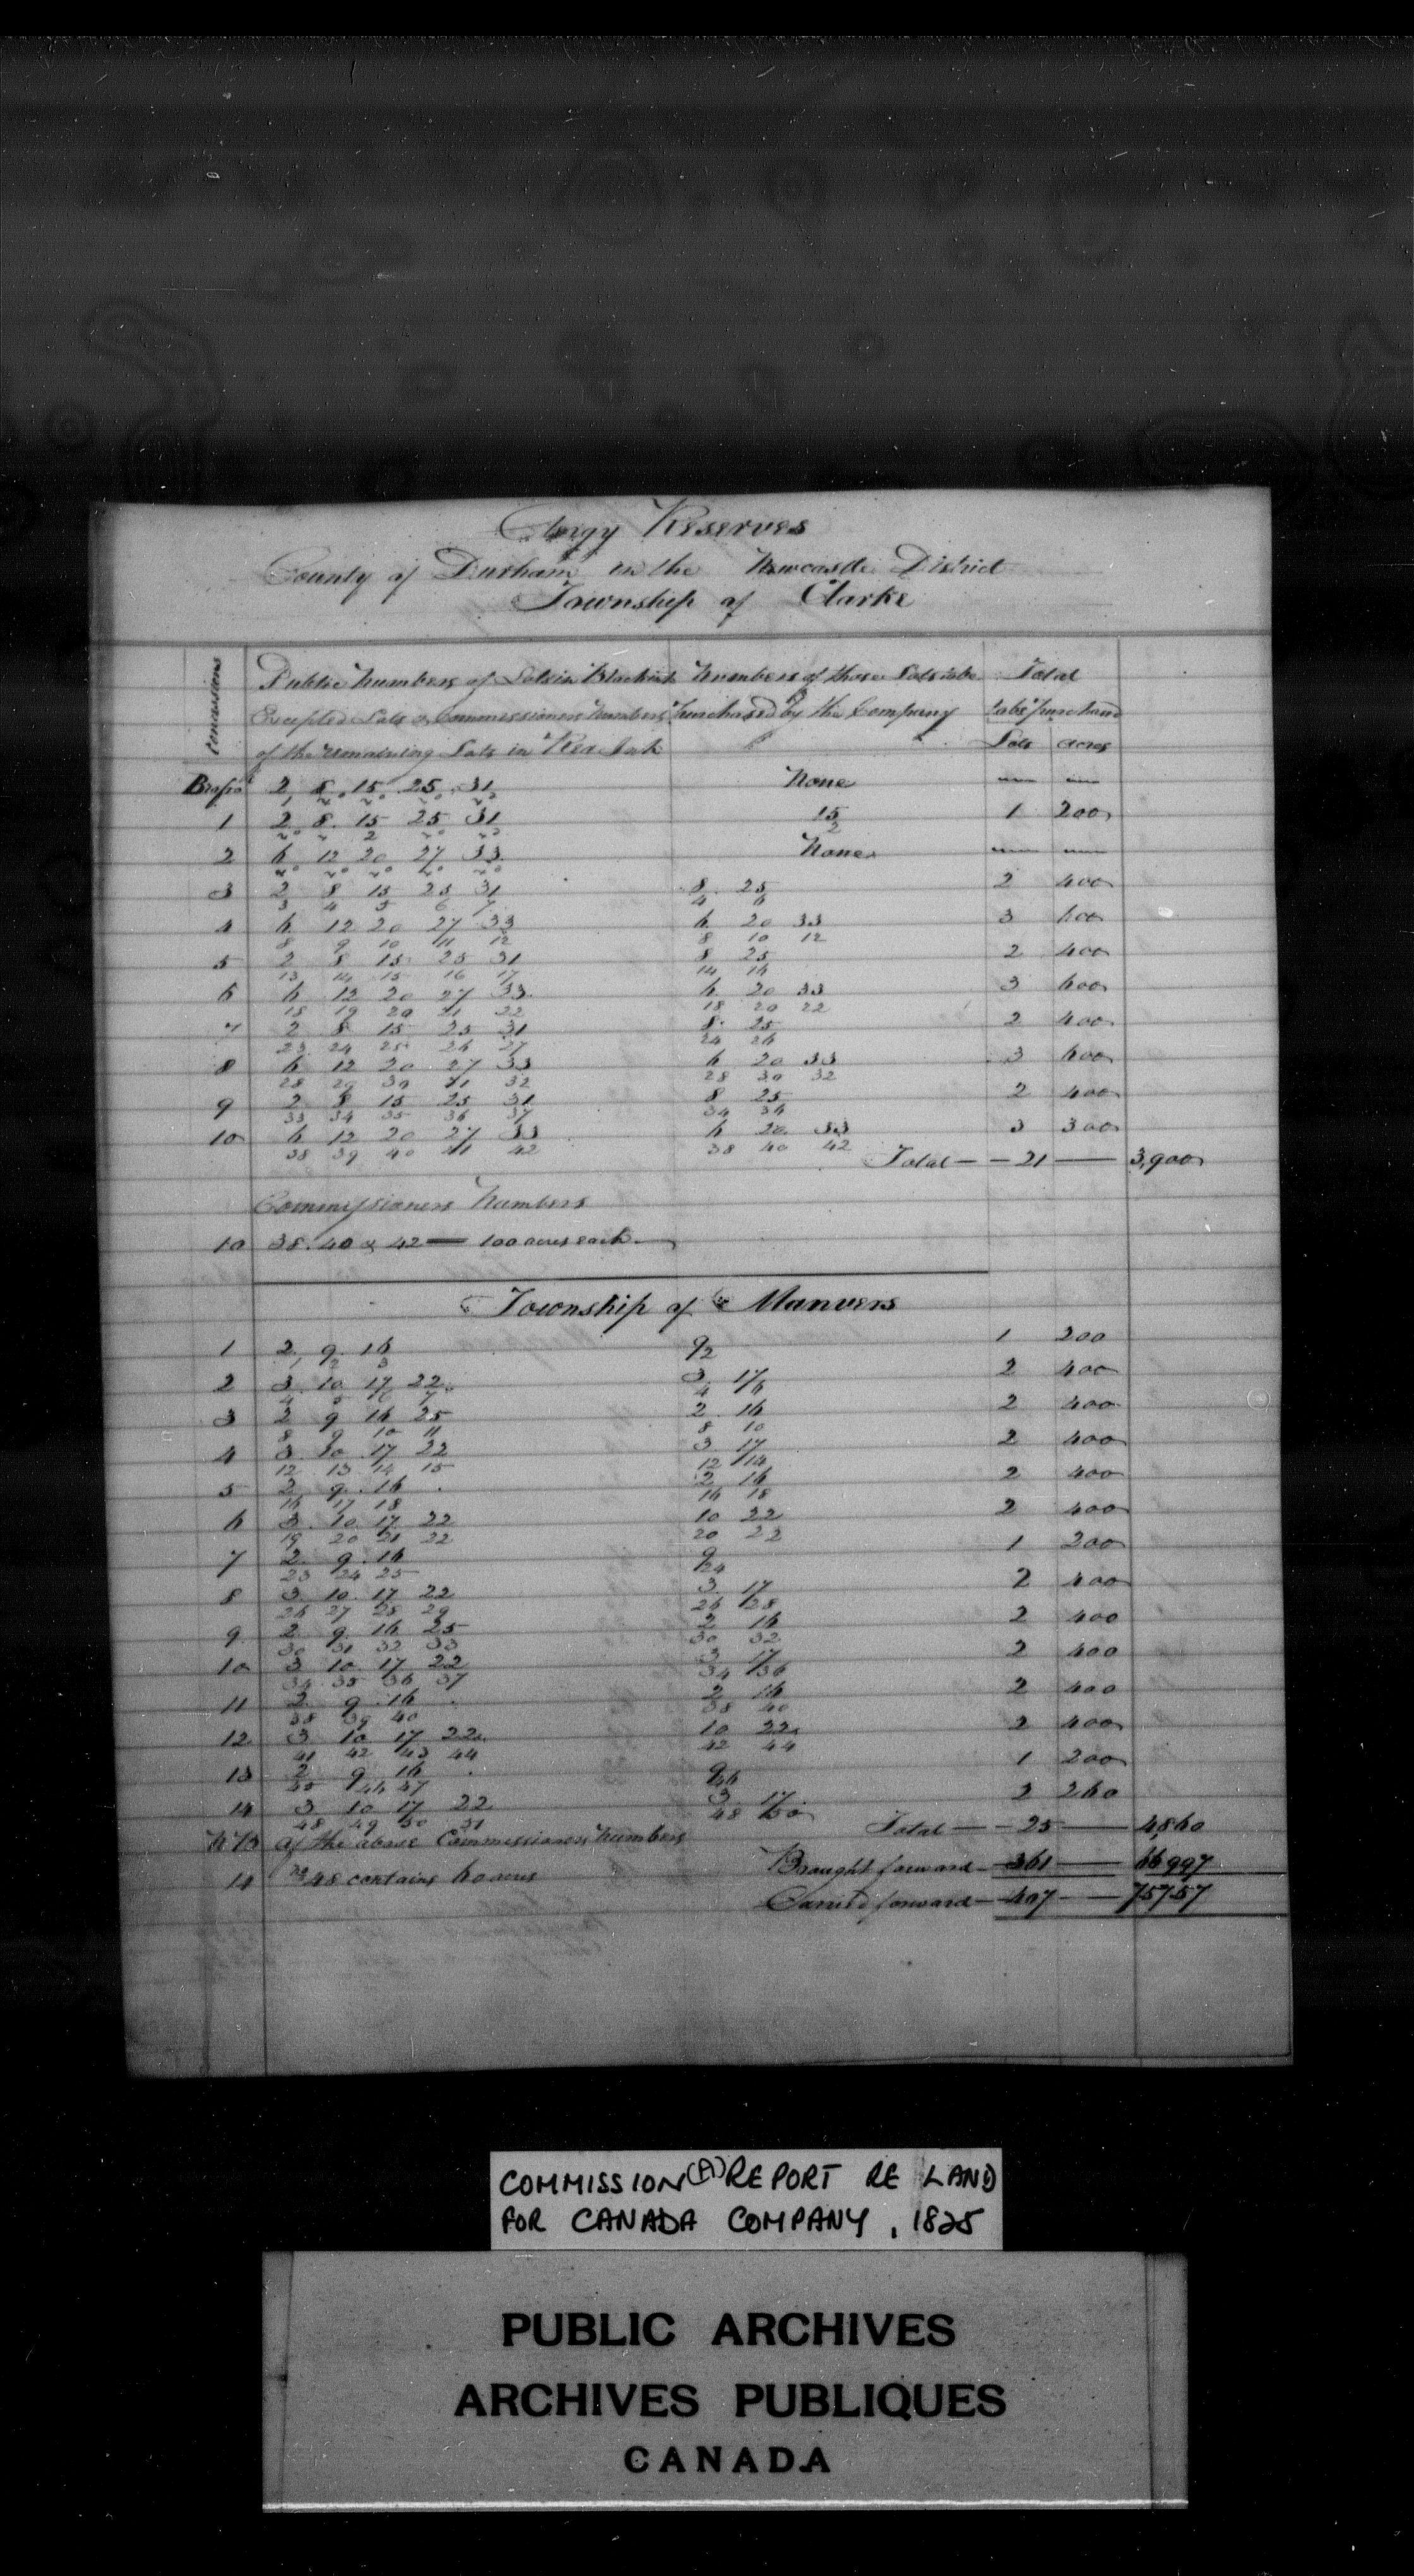 Clergy Reserves
County of Durham in the Newcastle District
Township of Clarke
Concessions
Public Numbers of Lots in Black ink Numbers of those Lots to be Total
Excepted Lots & Commissioners Numbers purchased by the Company to be purchased
of the remaining Lots in Red Ink Lots acres
2 8 15 25 31 None — —
1 n° n° n° n°
1 2 8 15 25 31 15 1 200
n° n° 2 n° n° 2
2 6 12 20 27 33 None — —
n° n° n° n° n°
3 2 8 15 25 31 8 25 2 400
3 4 5 6 7 4 6
4 6 12 20 27 33 6 20 33 3 600
8 9 10 11 12 8 10 12
5 2 8 15 25 31 8 25 2 400
13 14 15 16 17 14 16
6 6 12 20 27 33 6 20 33 3 600
18 19 20 21 22 18 20 22
7 2 8 15 25 31 8 25 2 400
23 24 25 26 27 24 26
8 6 12 20 27 33 6 20 33 3 600
28 29 30 31 32 28 30 32
9 2 8 15 25 31 8 25 2 400
33 34 35 36 37 34 36
10 6 12 20 27 33 6 20 33 3 300
38 39 40 41 42 38 40 42
Total — 21 — 3,900
Commissioners Numbers
10 38. 40 & 42 — 100 acres each
Township of Manvers
1 2 9 16 9 1 200
1 2 3 2
2 3 10 17 22 3 17 2 400
4 5 6 7 4 6
3 2 9 16 25 2 16 2 400
8 9 10 11 8 10
4 3 10 17 22 3 17 2 400
12 13 14 15 12 14
5 2 9 16 2 16 2 400
16 17 18 16 18
6 3 10 17 22 10 22 2 400
19 20 21 22 20 22
7 2 9 16 9 1 200
23 24 25 24
8 3 10 17 22 3 17 2 400
26 27 28 29 26 28
9 2 9 16 25 2 16 2 400
30 31 32 33 30 32
10 3 10 17 22 3 17 2 400
34 35 36 37 34 36
11 2 9 16 2 16 2 400
38 39 40 38 40
12 3 10 17 22 10 22 2 400
41 42 43 44 42 44
13 2 9 16 9 1 200
45 46 47 46
14 3 10 17 22 3 17 2 260
48 49 50 51 48 50
NB of the above Commissioners Numbers Total — 25 — 4,860
14 48 contains 60 acres Brought forward — 361 — 66,997
Carried forward — 407 — 75757
COMMISSION (A) REPORT RE LAND
FOR CANADA COMPANY, 1825
PUBLIC ARCHIVES
ARCHIVES PUBLIQUES
CANADA